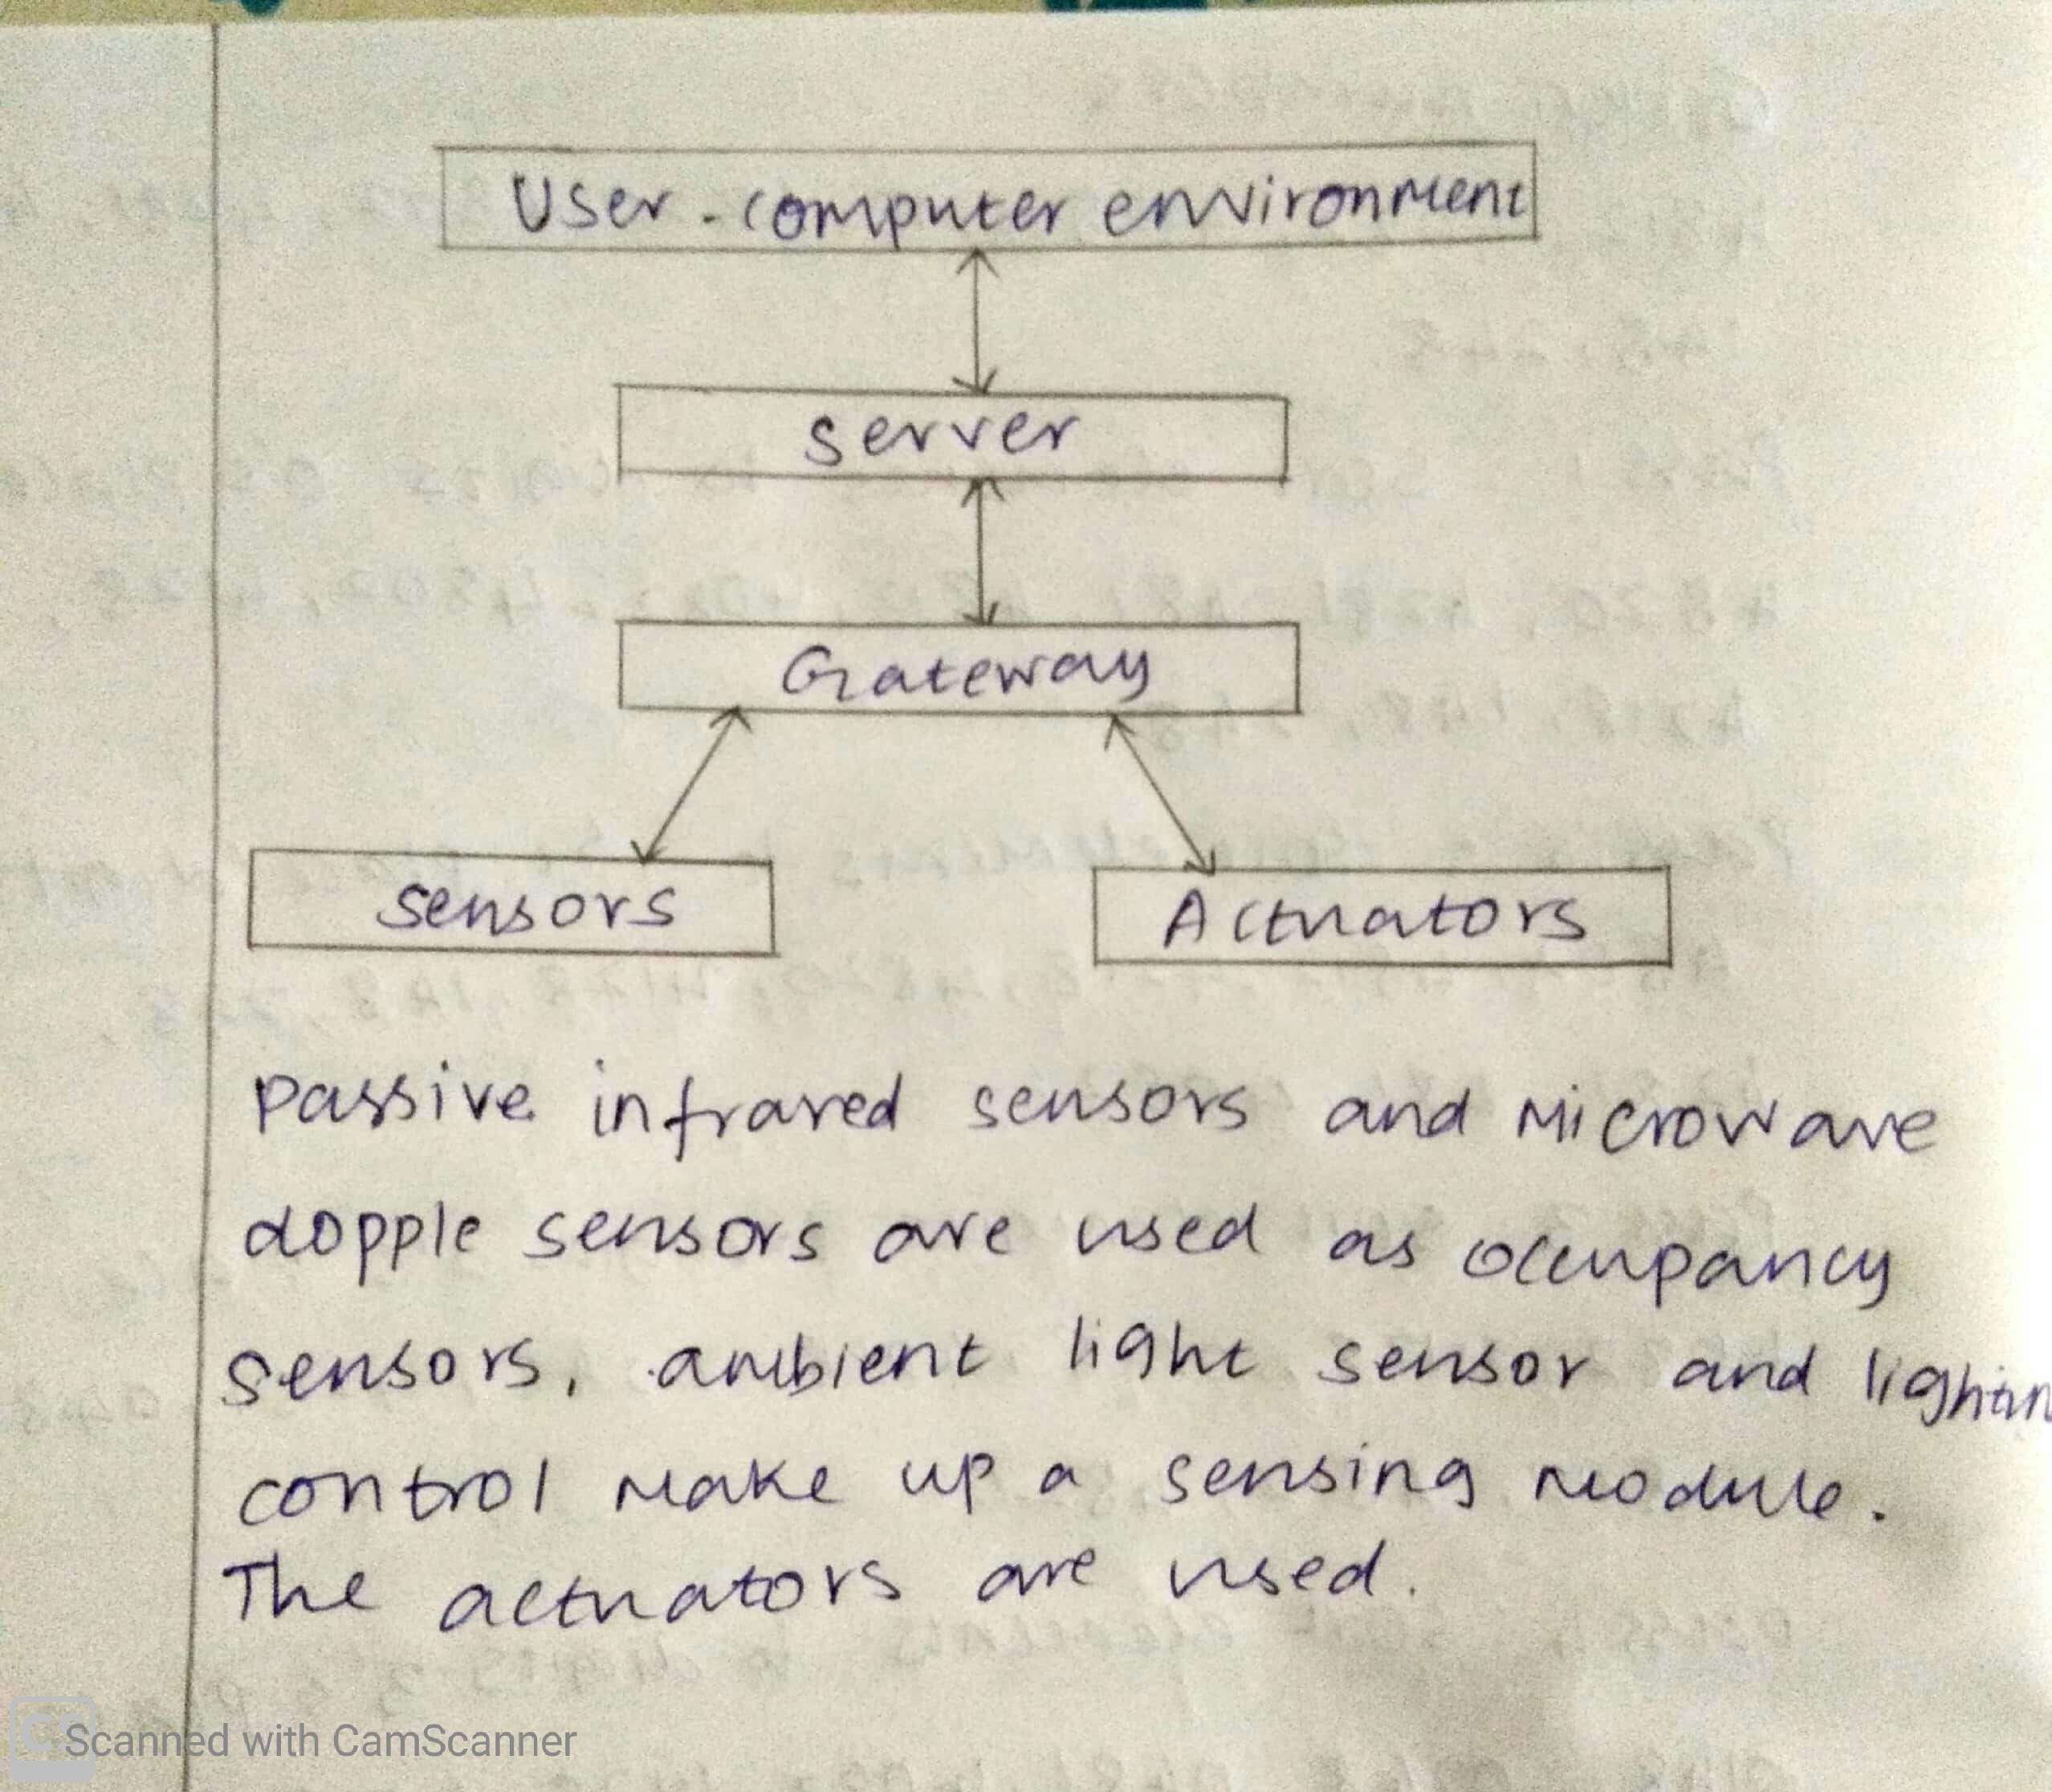 User-computer environment
server
Gateway
sensors Actuators
passive infrared sensors and microwave
dopple sensors are used as occupancy
sensors, ambient light sensor and lightin
control make up a sensing module.
The actuators are used.
CS Scanned with CamScanner